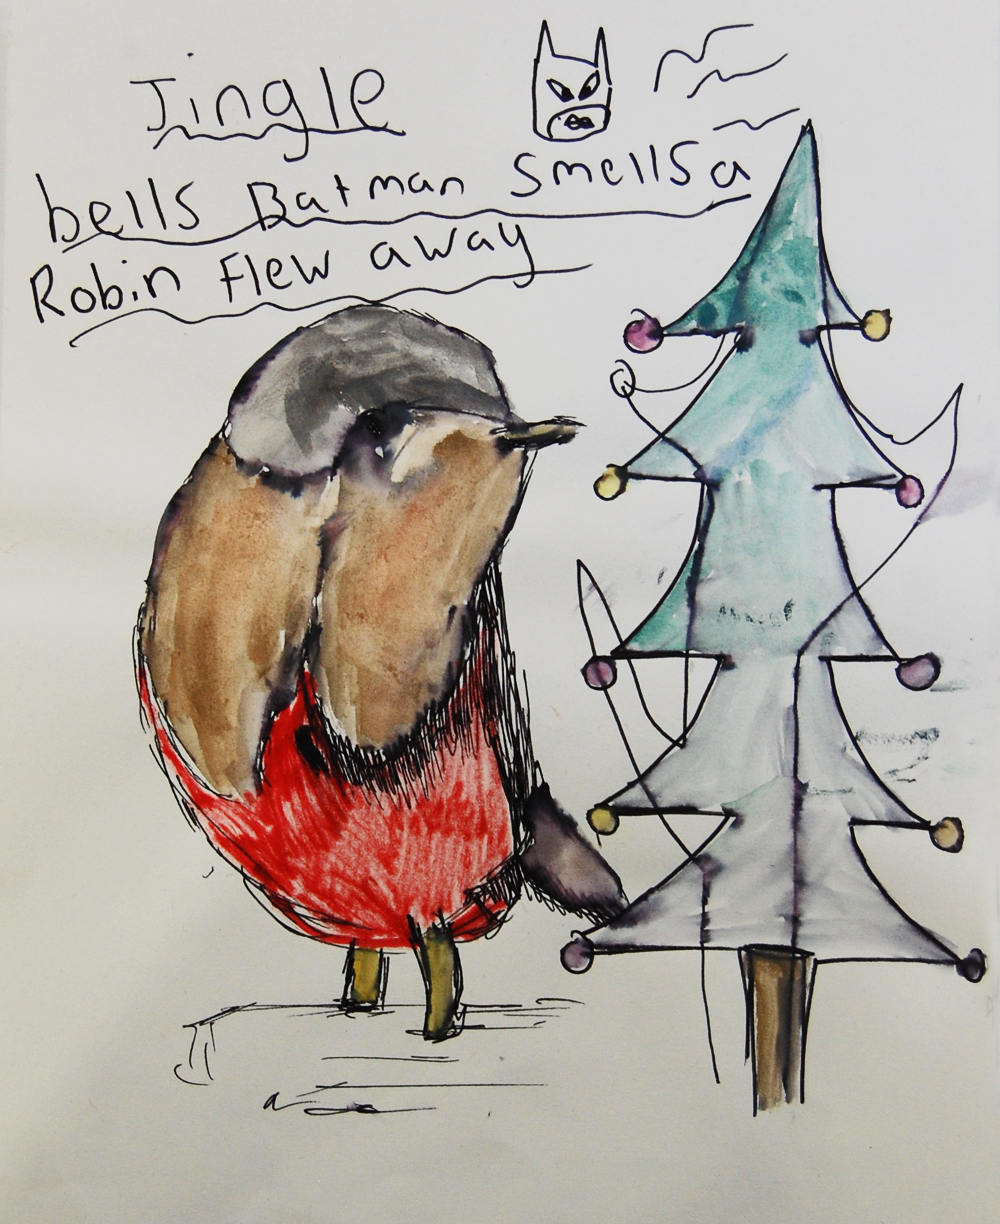 Jingle
bells Batman smells a
Robin flew away